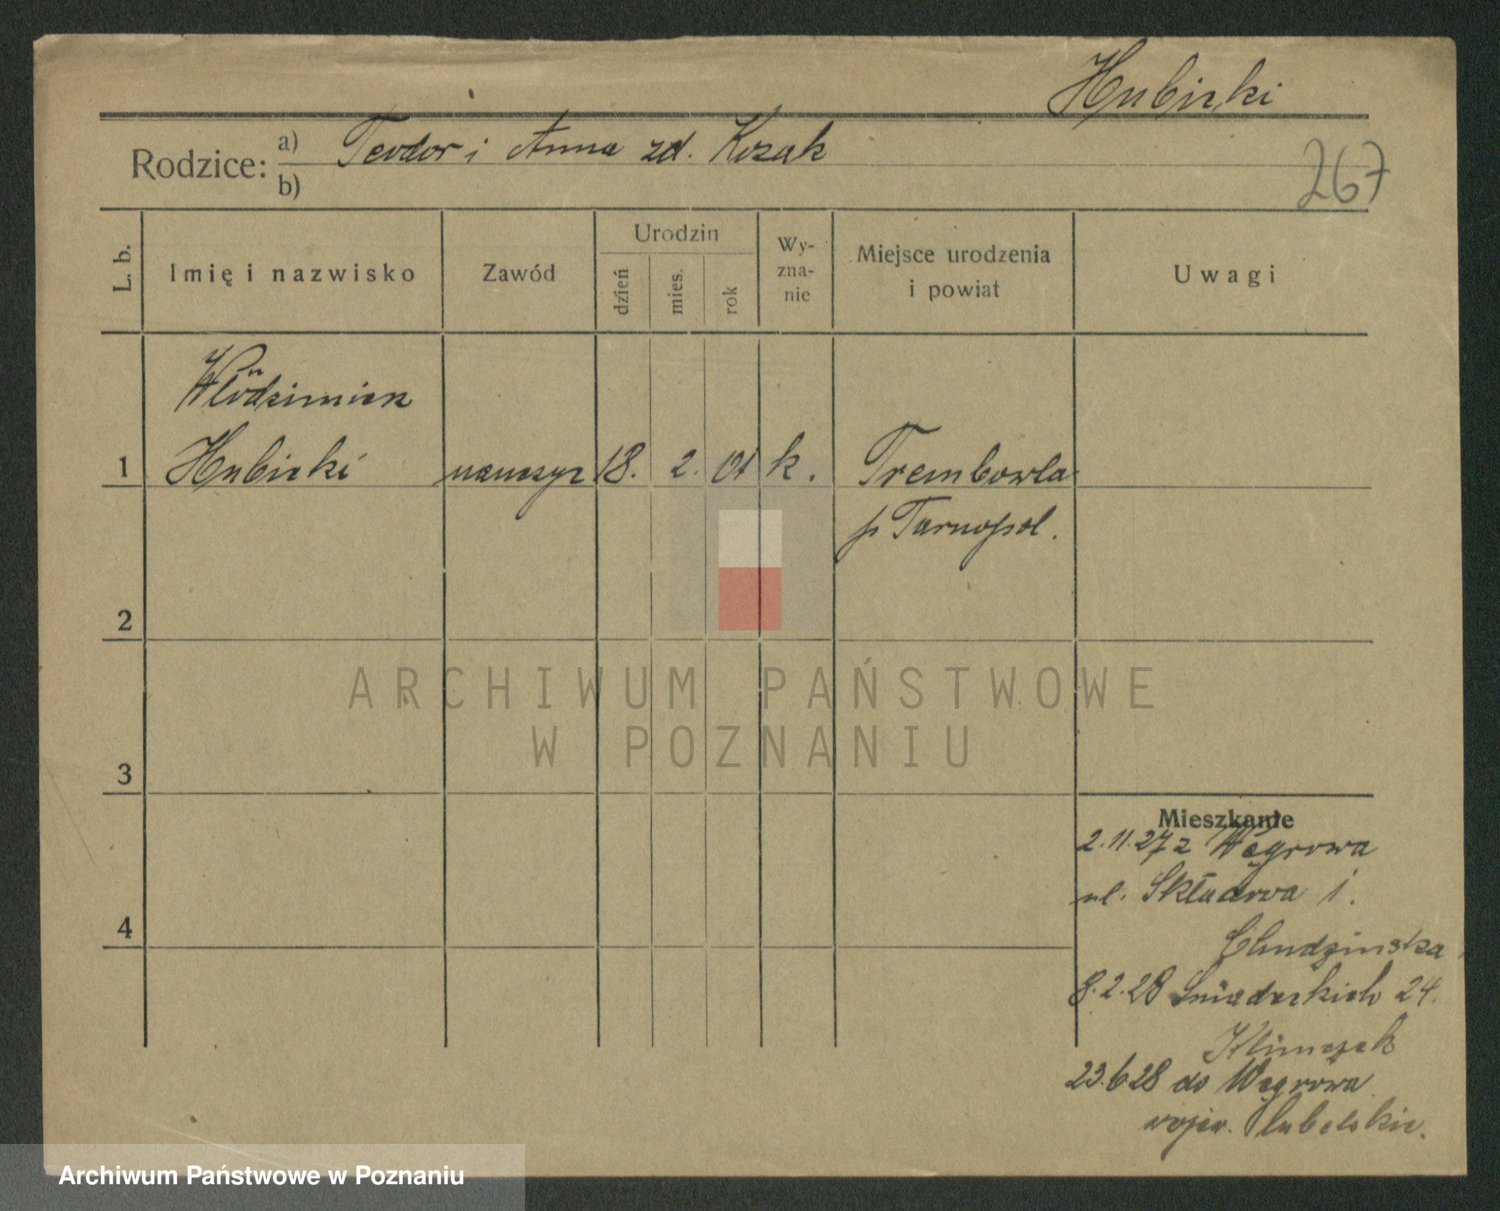 Hubicki
Rodzice: a) Teodor i Anna zd. Kozak
b)
267
L. b.
Imię i nazwisko
Zawód
Urodzin
dzień
mies.
rok
Wy-
zna-
nie
Miejsce urodzenia
i powiat
Uwagi
Włodzimierz
1 Hubicki nauczyc 18. 2. 01 k. Trembowla
p Tarnopol.
2
3
4
ARCHIWUM PAŃSTWOWE
W POZNANIU
Mieszkanie
2.11.27 z Węgrowa
ul. Składowa 1.
Chudzińska
8.2.28 Śniadeckich 24.
Klimczak
23.6.28 do Węgrowa
wojew. lubelskie.
Archiwum Państwowe w Poznaniu